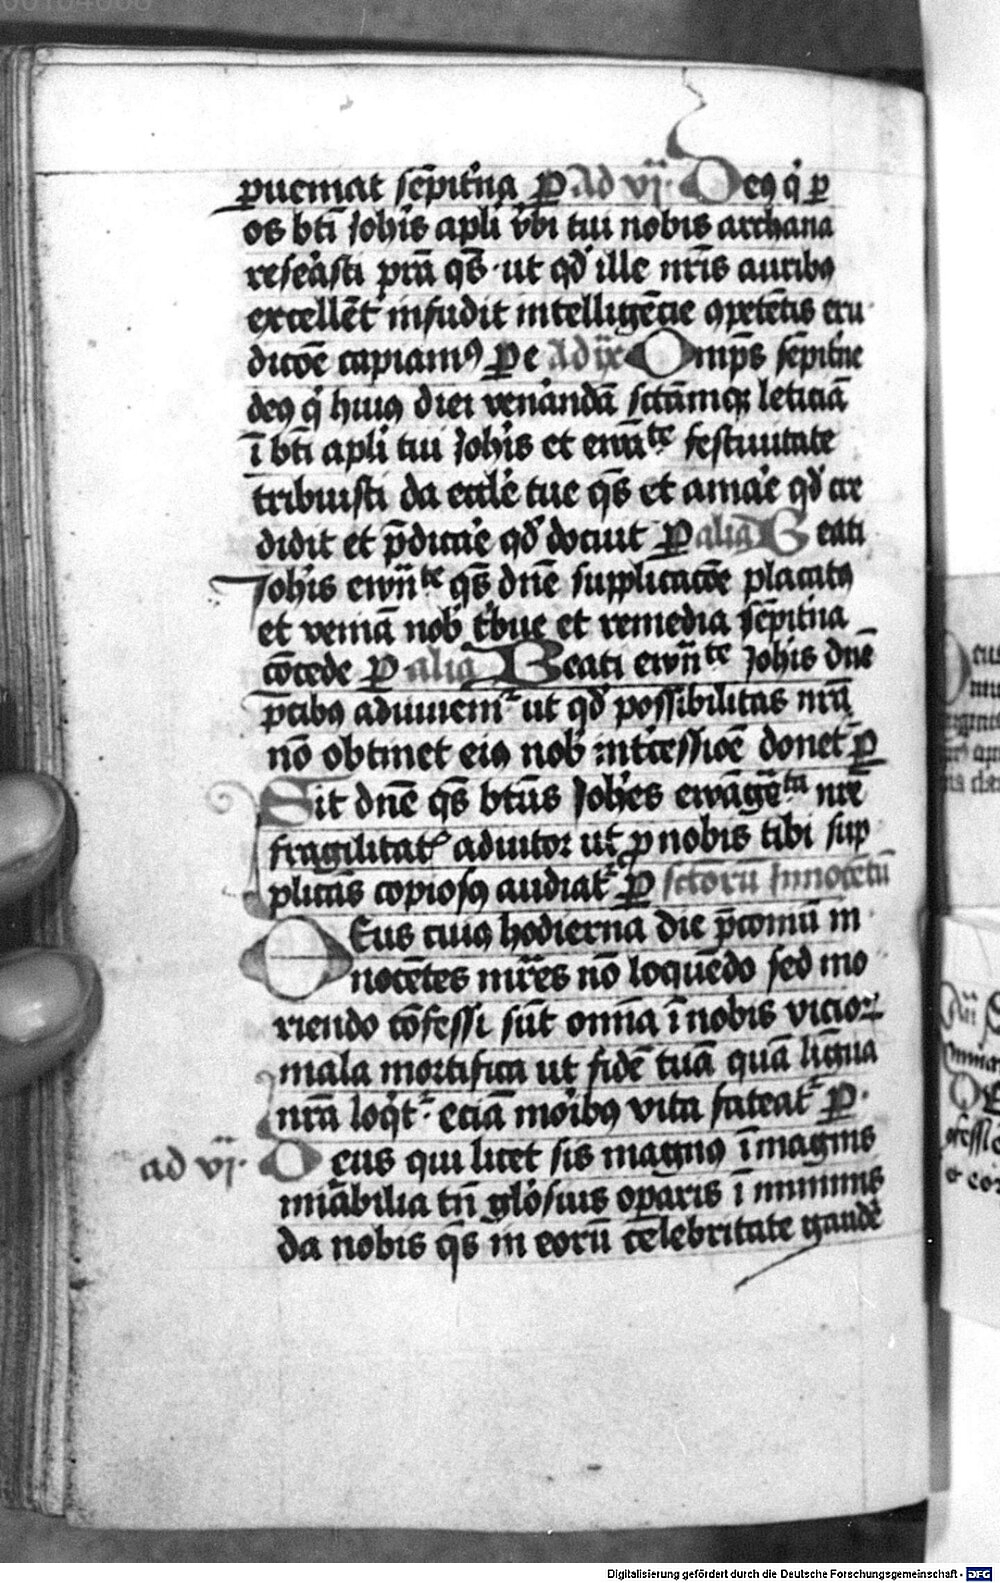 pueniat sēpit͛na ꝑ Ad vj. Deꝯ q̇ ꝑ
os bt̄i Joh̄is apl̄i v̄bi tui nobis archana
reseȧsti pr̄a qs̄ ut qd̛ ille nr̄is auribꝯ
excellēt͛ infudit intelligēcie ꝯpetētis eru
dicōe capiamꝯ Pe Ad ix Omp̄s sēpit͛ne
deꝯ q̇ huiꝯ diei ven͛andā sctāmqꝫ leticiā
ī bt̄i apl̄i tui Joh̄is et ewāᵗᵉ festiuitate
tribuisti da eccl̄e tue qs̄ et amar͛e qd̛ cre
didit et p̄dicar͛e qd̛ docuit ꝑ alia Beati
Joh̄is ewn̄ᵗᵉ qs̄ dn̄e supplicacōe placatꝯ
et veniā nob̛ t͛bue et remedia sēpit͛na
cōcede ꝑ alia Beati ewn̄ᵗᵉ Joh̄is dn̄e
p̄cibꝯ adiuuem̛ ut qd̛ possibilitas nr̄a
nō obtinet eiꝯ nob̛ int͛cessiōe donet͛ ꝑ
Sit dn̄e qs̄ bt̄us Joh̄es ewāgēᵗᵃ nr̄e
fragilitat͛ adiutor ut ꝓ nobis tibi sup
plicās copiosꝯ audiat͛ ꝑ sctōrū Innocētū
DEus cuiꝯ hodierna die p̄coniū in
nocētes mr̄es nō loquēdo sed mo
riendo cōfessi sūt om̄ia ī nobis vicioꝝ
mala mortifica ut fidē tuā quā lingua
nr̄a loqt̛ eciā moribꝯ vita fateat͛ ꝑ
ad vj. Deus qui licet sis magnꝯ ī magnis
mir̄abilia tn̄ glo͛sius oparis ī minimis
da nobis qs̄ in eorū celebritate gaudē
Digitalisierung gefördert durch die Deutsche Forschungsgemeinschaft - DFG